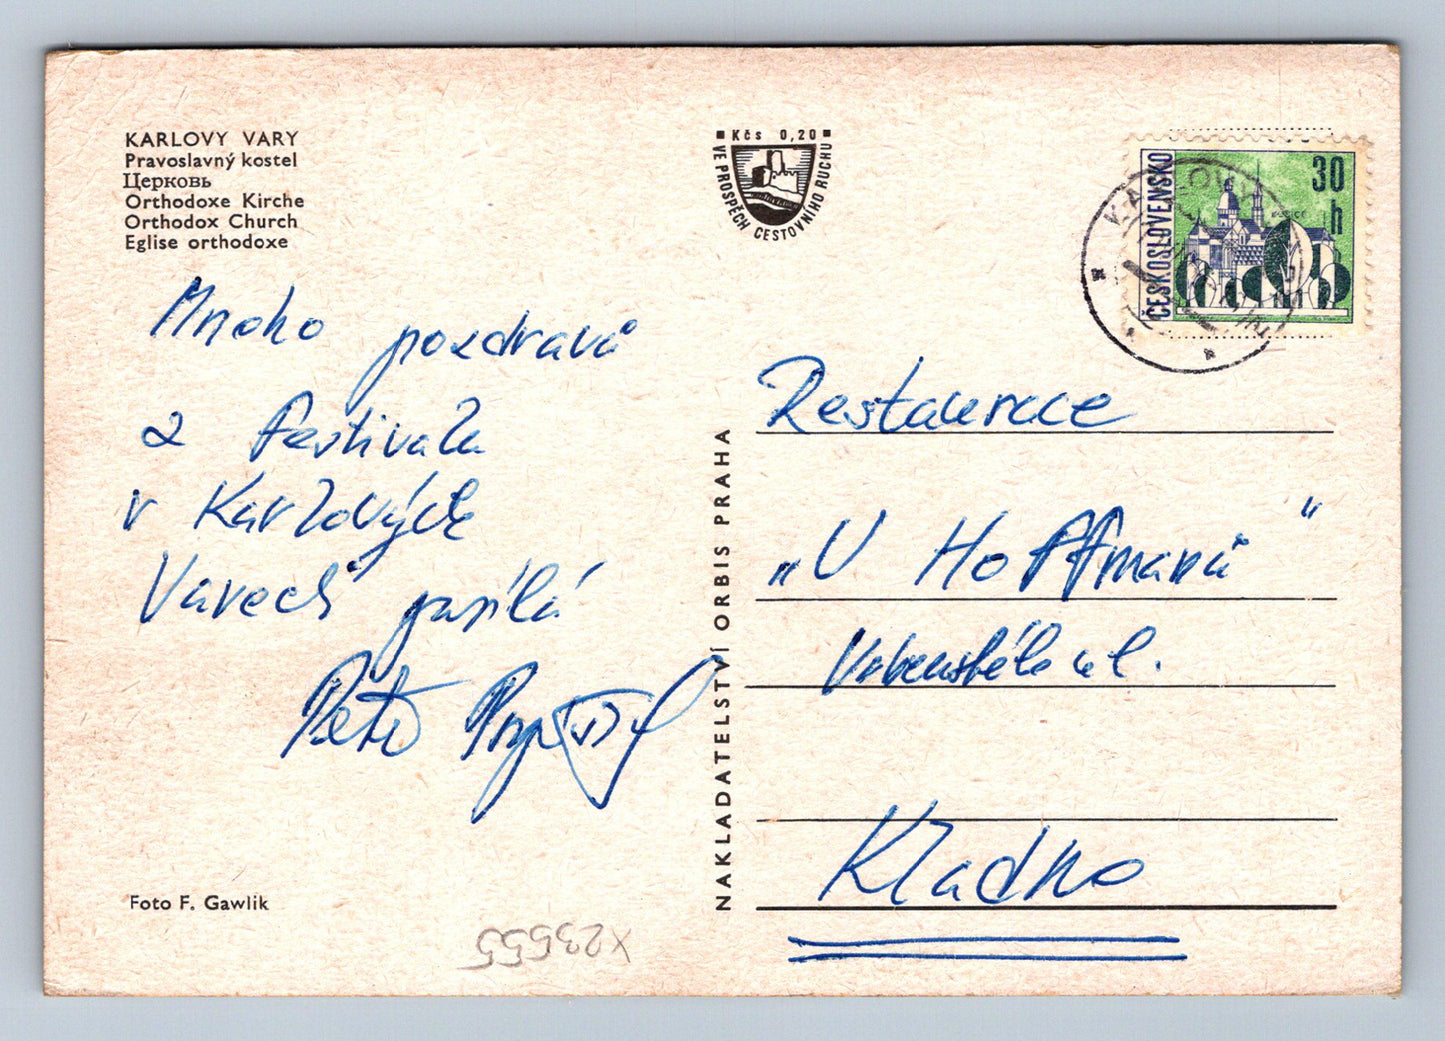 KARLOVY VARY
Pravoslavný kostel
Церковь
Orthodoxe Kirche
Orthodox Church
Eglise orthodoxe
Kčs 0,20
VE PROSPĚCH CESTOVNÍHO RUCHU
ČESKOSLOVENSKO
30
h
Mnoho pozdravů
z festivalu
v Karlových
Varech posílá
Petr
Restaurace
„U Hoffmanů"
ul.
Kladno
NAKLADATELSTVÍ ORBIS PRAHA
Foto F. Gawlik
X23555